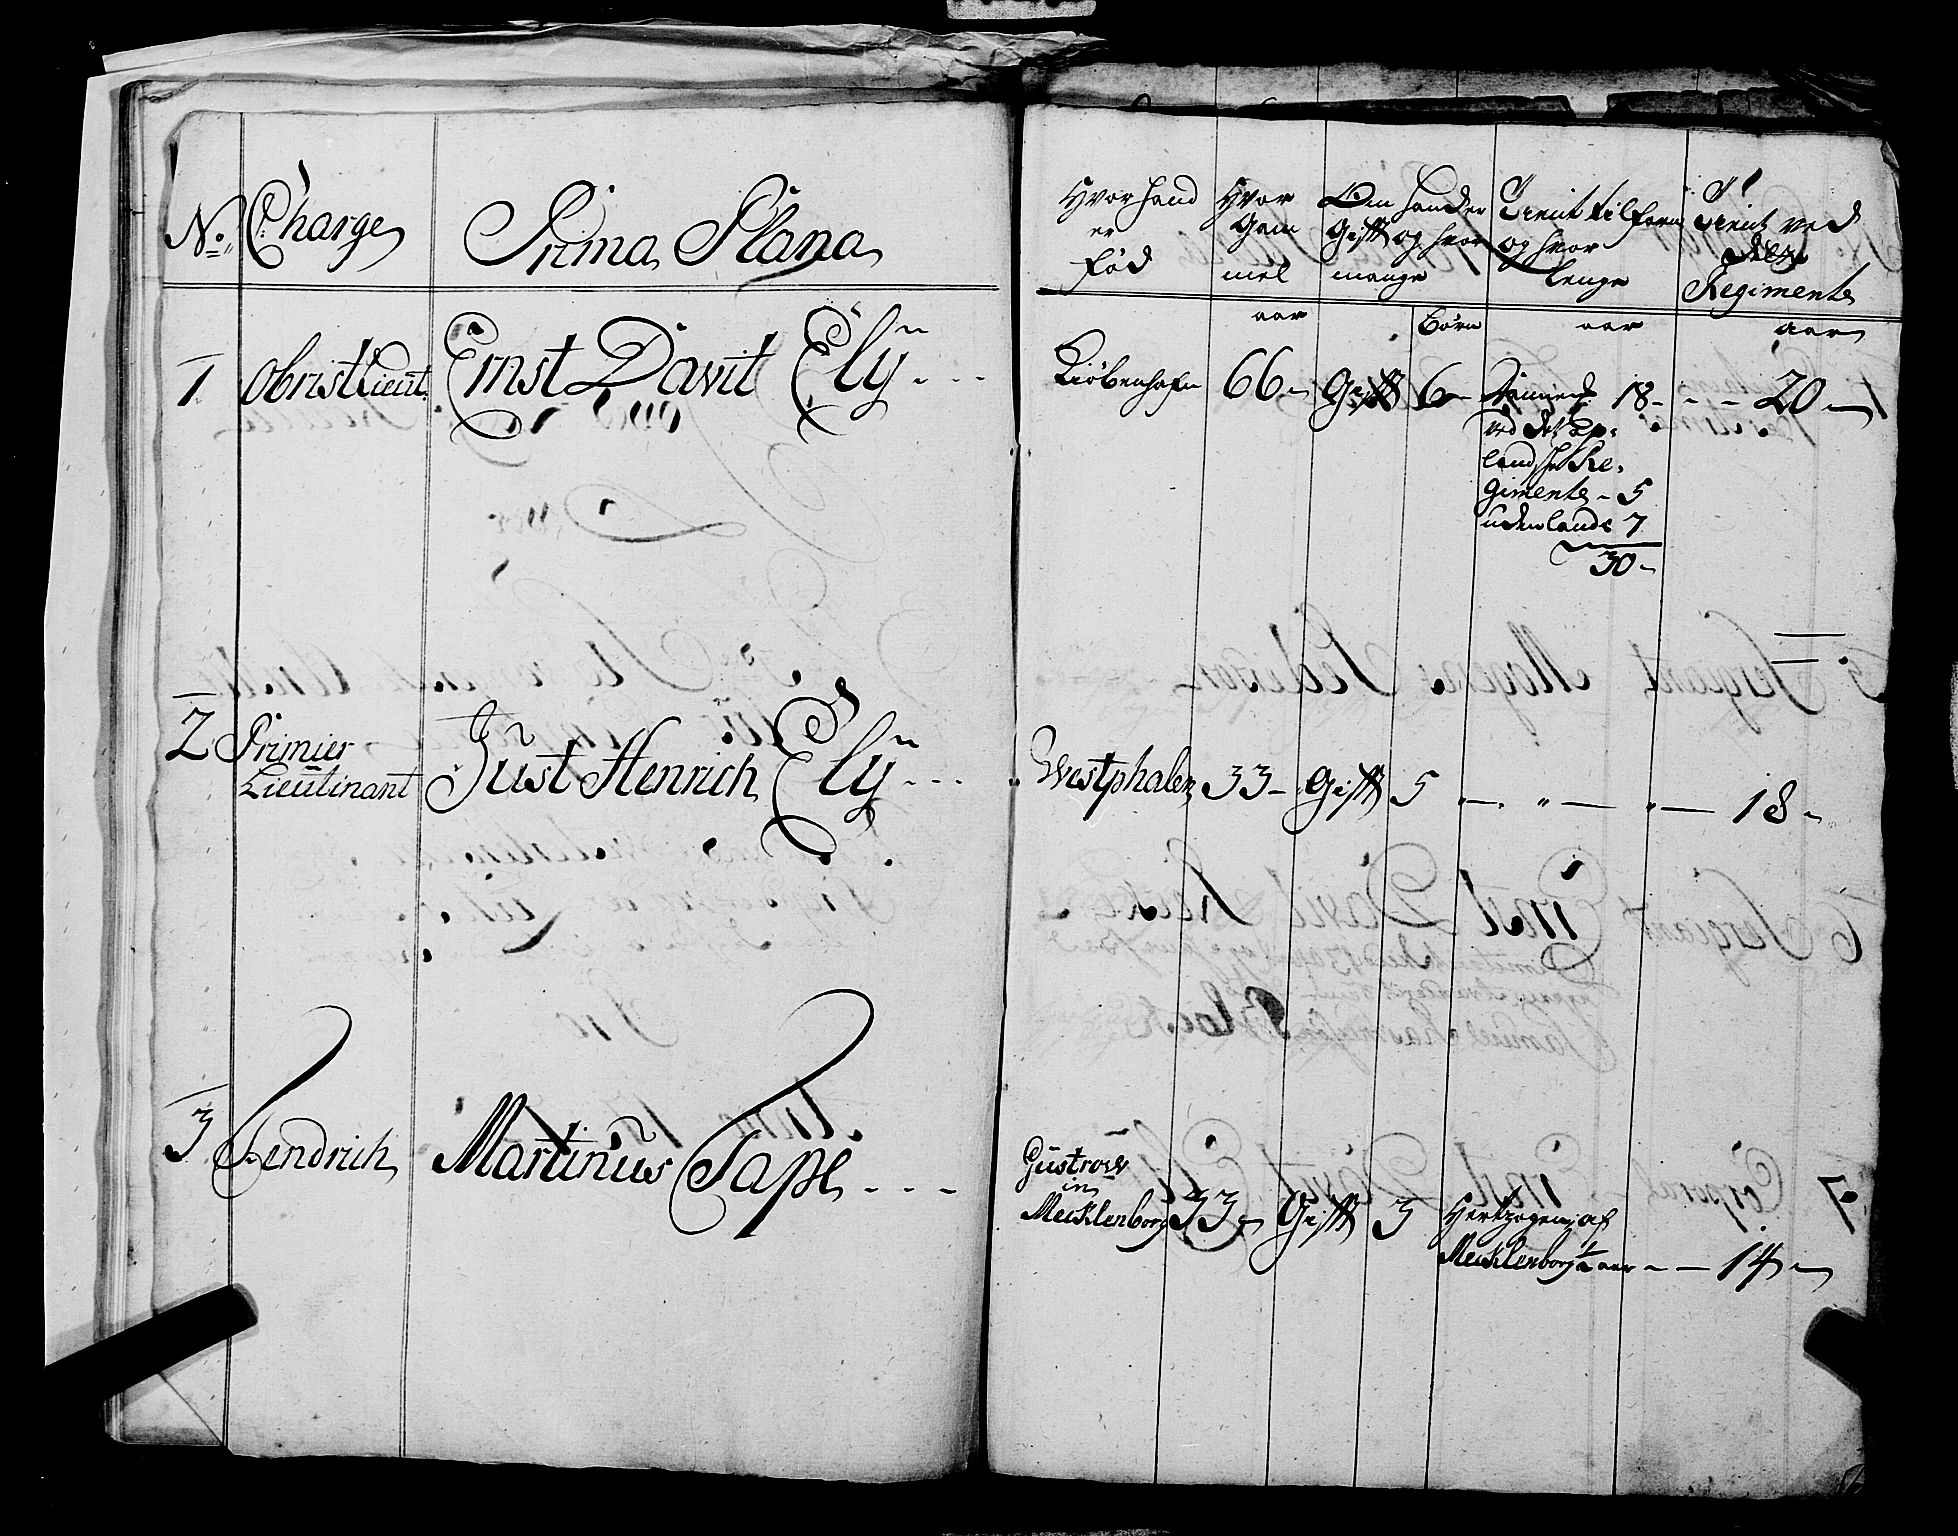 No. Charge Prima Plana
Hvor hand er fød
Hvor Gam mel
Om hand er Gifft og hvor mange
Tient tilforn og hvor lenge
Tient ved dette Regimente
aar Børn aar aar
1 Obristlieut. Ernst Davit Elÿ
Kiöbenhafn 66 Gifft 6 18 20
ved det
land Re-
gimente 5
udenlands 7
30
2 Primier Lieutinant Just Henrich Elÿ
Westphalen 33 Gifft 5 " " 18
3 Fendrich Martinus Pape
Güstrow
in
Mecklenborg 33 Gifft 3 Hertzogen af
Mecklenborg ½ aar 14